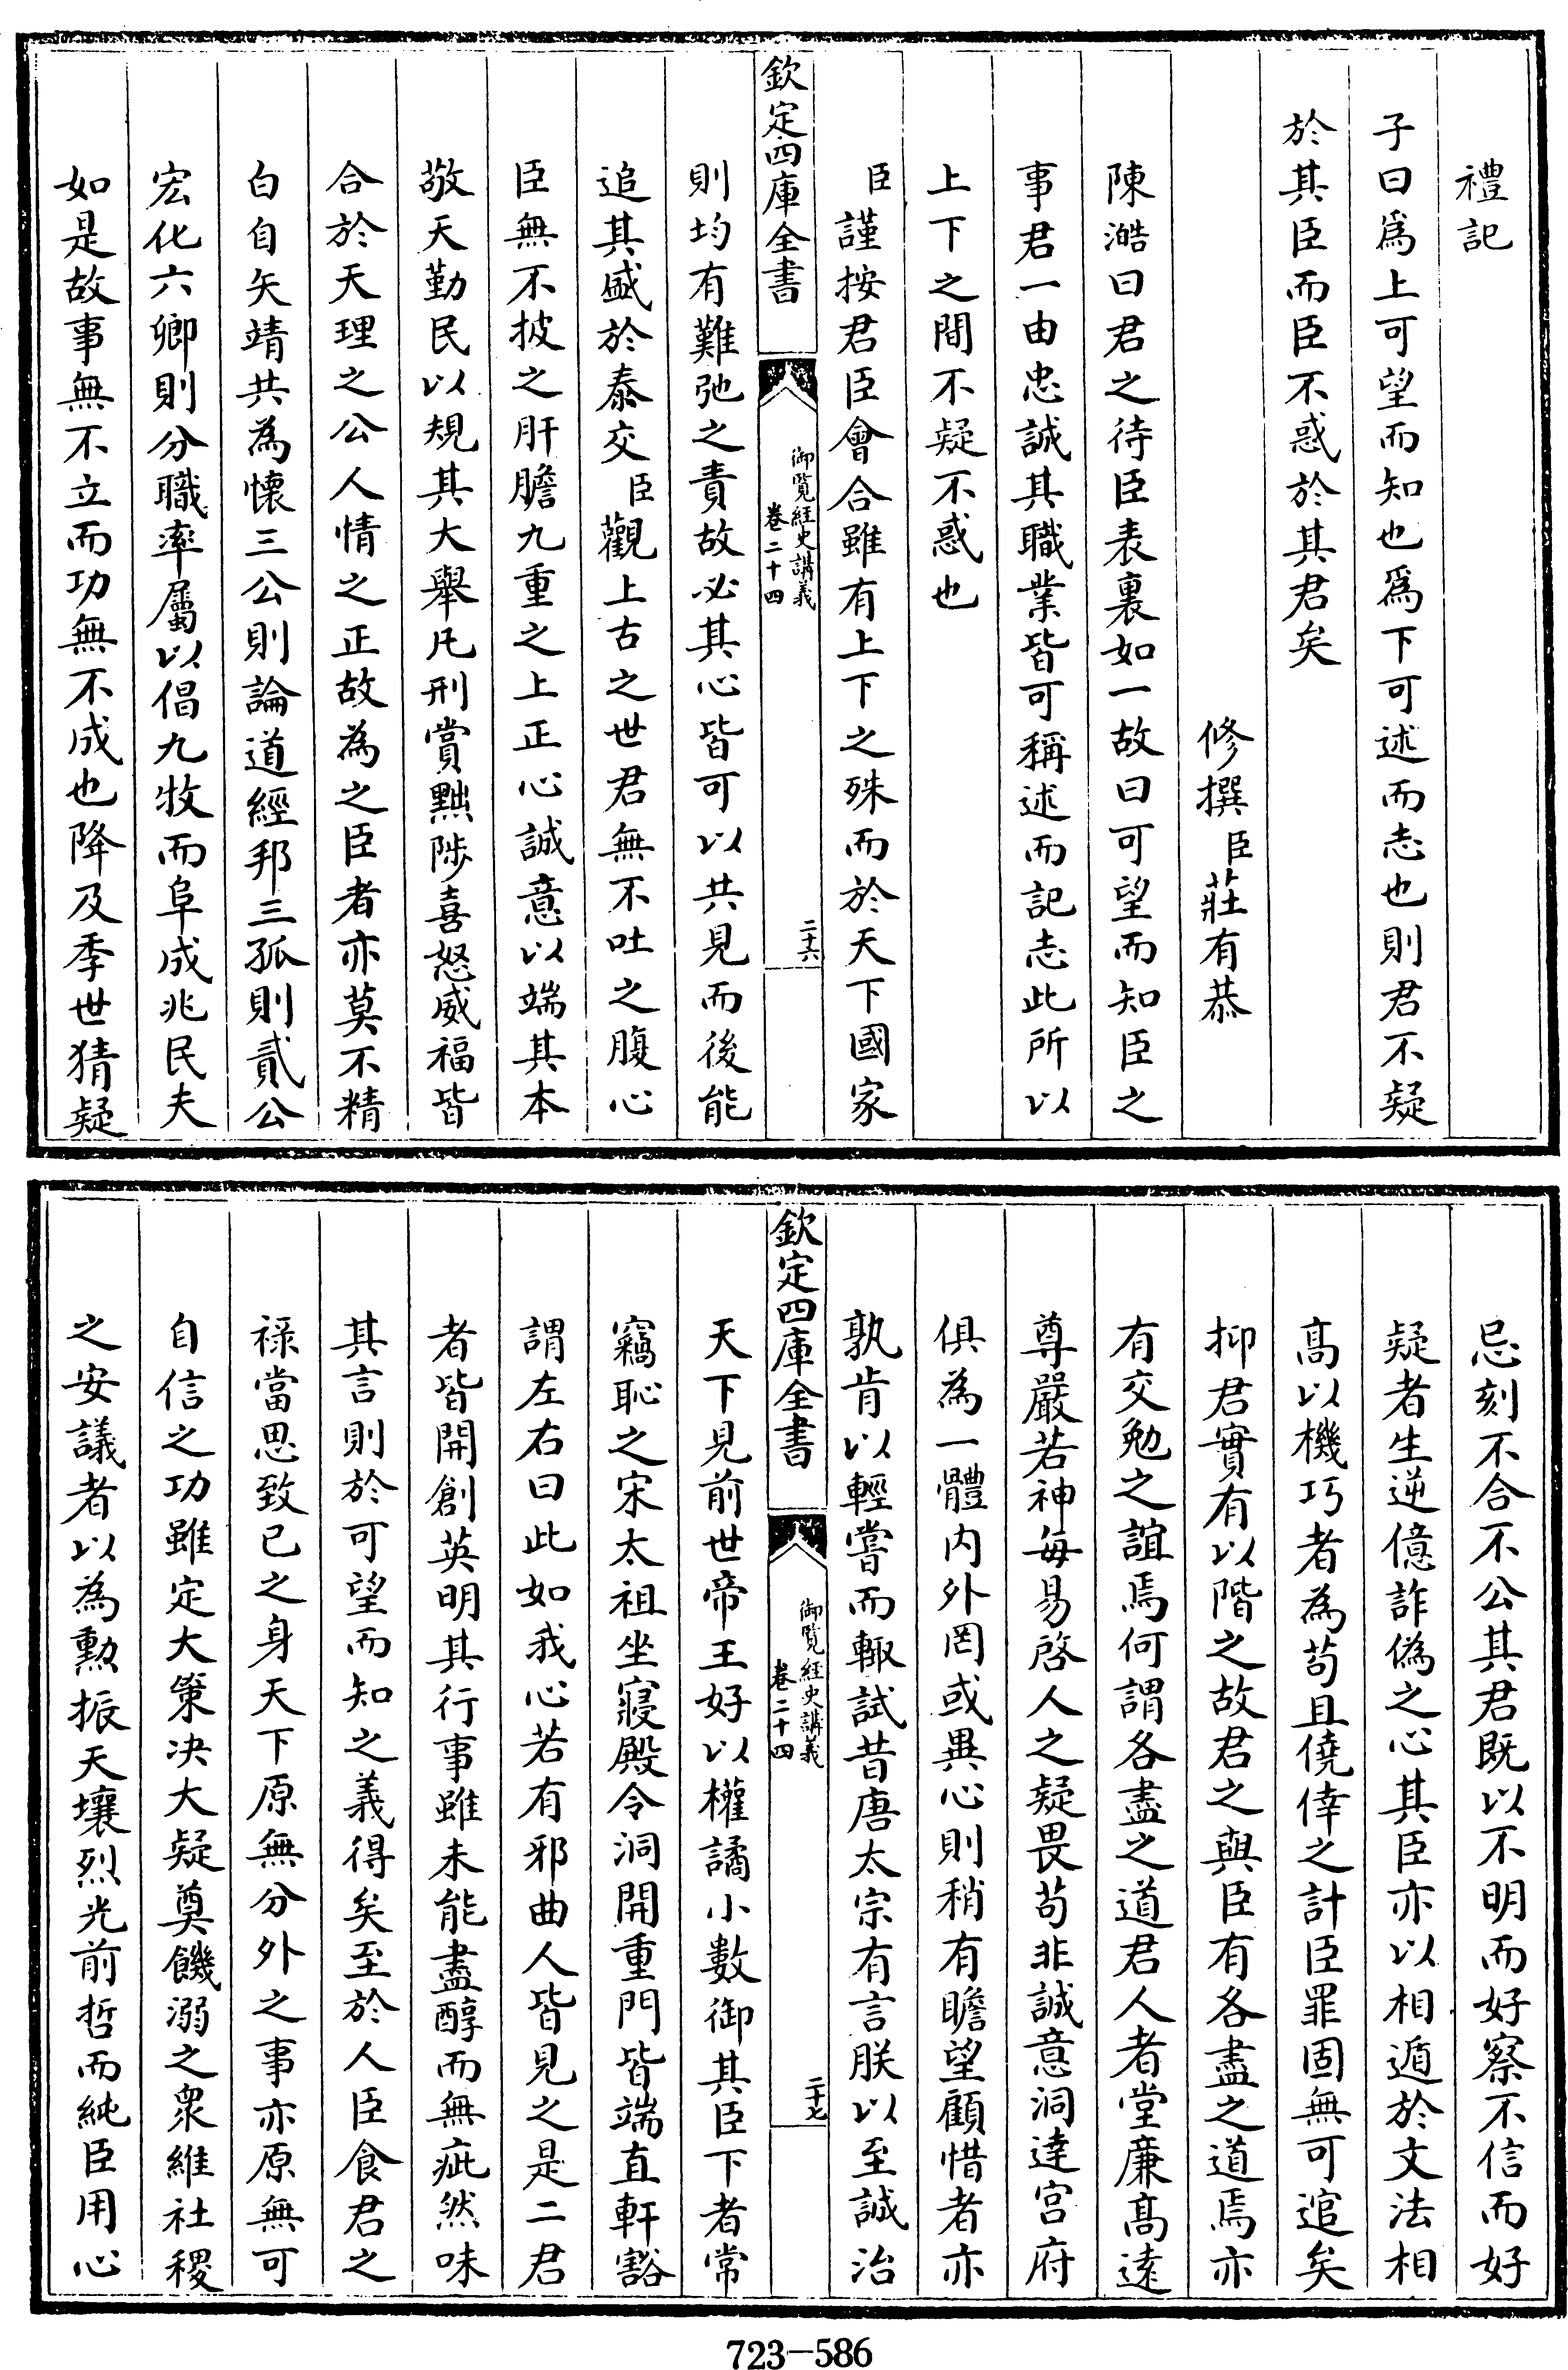 禮記
子曰爲上可望而知也爲下可述而志也則君不疑
於其臣而臣不惑於其君矣
修撰臣莊有恭
陳澔曰君之待臣表裏如一故曰可望而知臣之
事君一由忠誠其職業皆可稱述而記志此所以
上下之間不疑不惑也
臣謹按君臣會合雖有上下之殊而於天下國家
欽定四庫全書
御覽經史講義
卷二十四
二十六
則均有難弛之責故必其心皆可以共見而後能
追其盛於泰交臣觀上古之世君無不吐之腹心
臣無不披之肝膽九重之上正心誠意以端其本
敬天勤民以規其大舉凡刑賞黜陟喜怒威福皆
合於天理之公人情之正故為之臣者亦莫不精
白自矢靖共為懷三公則論道經邦三孤則貳公
宏化六卿則分職率屬以倡九牧而阜成兆民夫
如是故事無不立而功無不成也降及季世猜疑
忌刻不合不公其君既以不明而好察不信而好
疑者生逆億詐偽之心其臣亦以相遁於文法相
高以機巧者為苟且僥倖之計臣罪固無可逭矣
抑君實有以階之故君之與臣有各盡之道焉亦
有交勉之誼焉何謂各盡之道君人者堂廉高遠
尊嚴若神每易啓人之疑畏苟非誠意洞達宮府
俱為一體内外罔或異心則稍有瞻望顧惜者亦
孰肯以輕嘗而輙試昔唐太宗有言朕以至誠治
欽定四庫全書
御覽經史講義
卷二十四
二十七
天下見前世帝王好以權譎小數御其臣下者常
竊恥之宋太祖坐寢殿令洞開重門皆端直軒豁
謂左右曰此如我心若有邪曲人皆見之是二君
者皆開創英明其行事雖未能盡醇而無疵然味
其言則於可望而知之義得矣至於人臣食君之
祿當思致已之身天下原無分外之事亦原無可
自信之功雖定大策决大疑奠饑溺之衆維社稷
之安議者以為勲振天壤烈光前哲而純臣用心
723—586